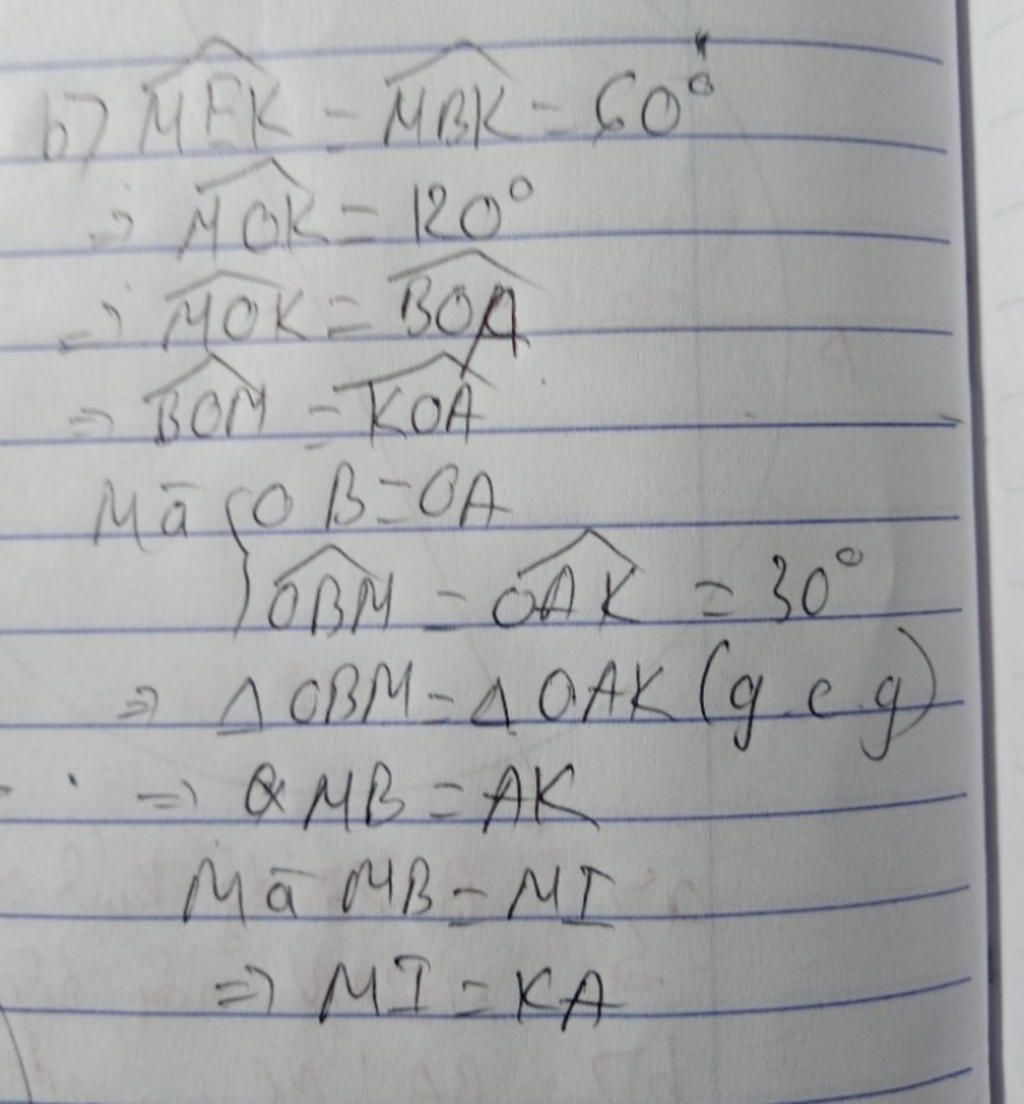 b) MEK = MBK = 60°
⇒ MOK = 120°
⇒ MOK = BOA
⇒ BOM = KOA
Mà { OB = OA
OBM = OAK = 30°
⇒ Δ OBM = Δ OAK (g c g)
⇒ MB = AK
Mà MB = MI
⇒ MI = KA